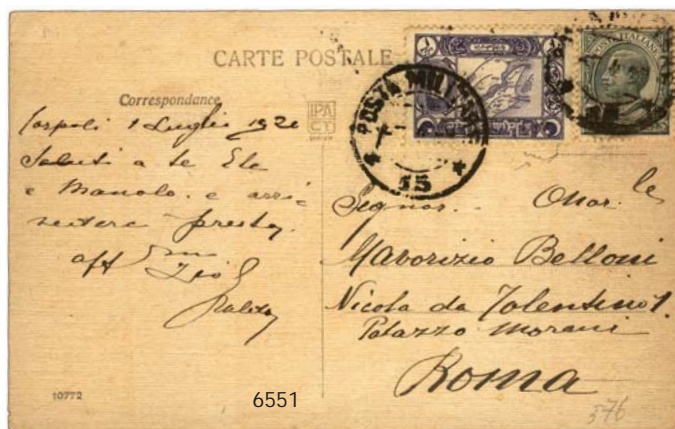 CARTE POSTALE
Correspondance
1 Luglio 1920
Saluti a te Ele
e Manolo e
presto
aff
Zio
IPA
CT
POSTA MILITARE
15
POSTE ITALIANE
Signor Onor. le
Maborizio Belloni
Nicola da Tolentino 1.
Palazzo Morani
Roma
10772
6551
576